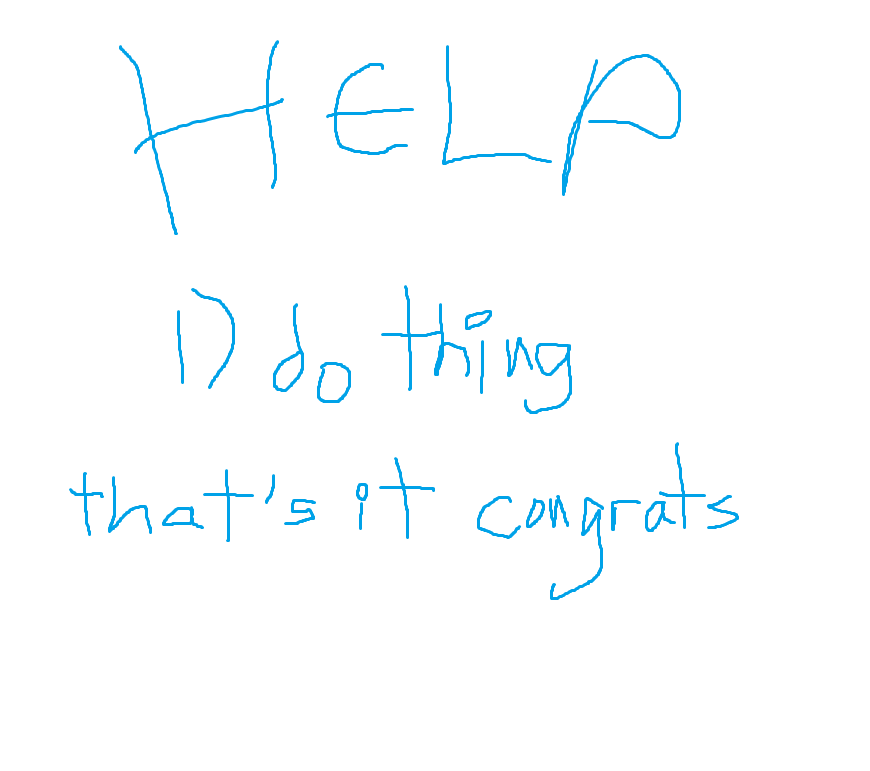 HELP
1) do thing
that's it congrats